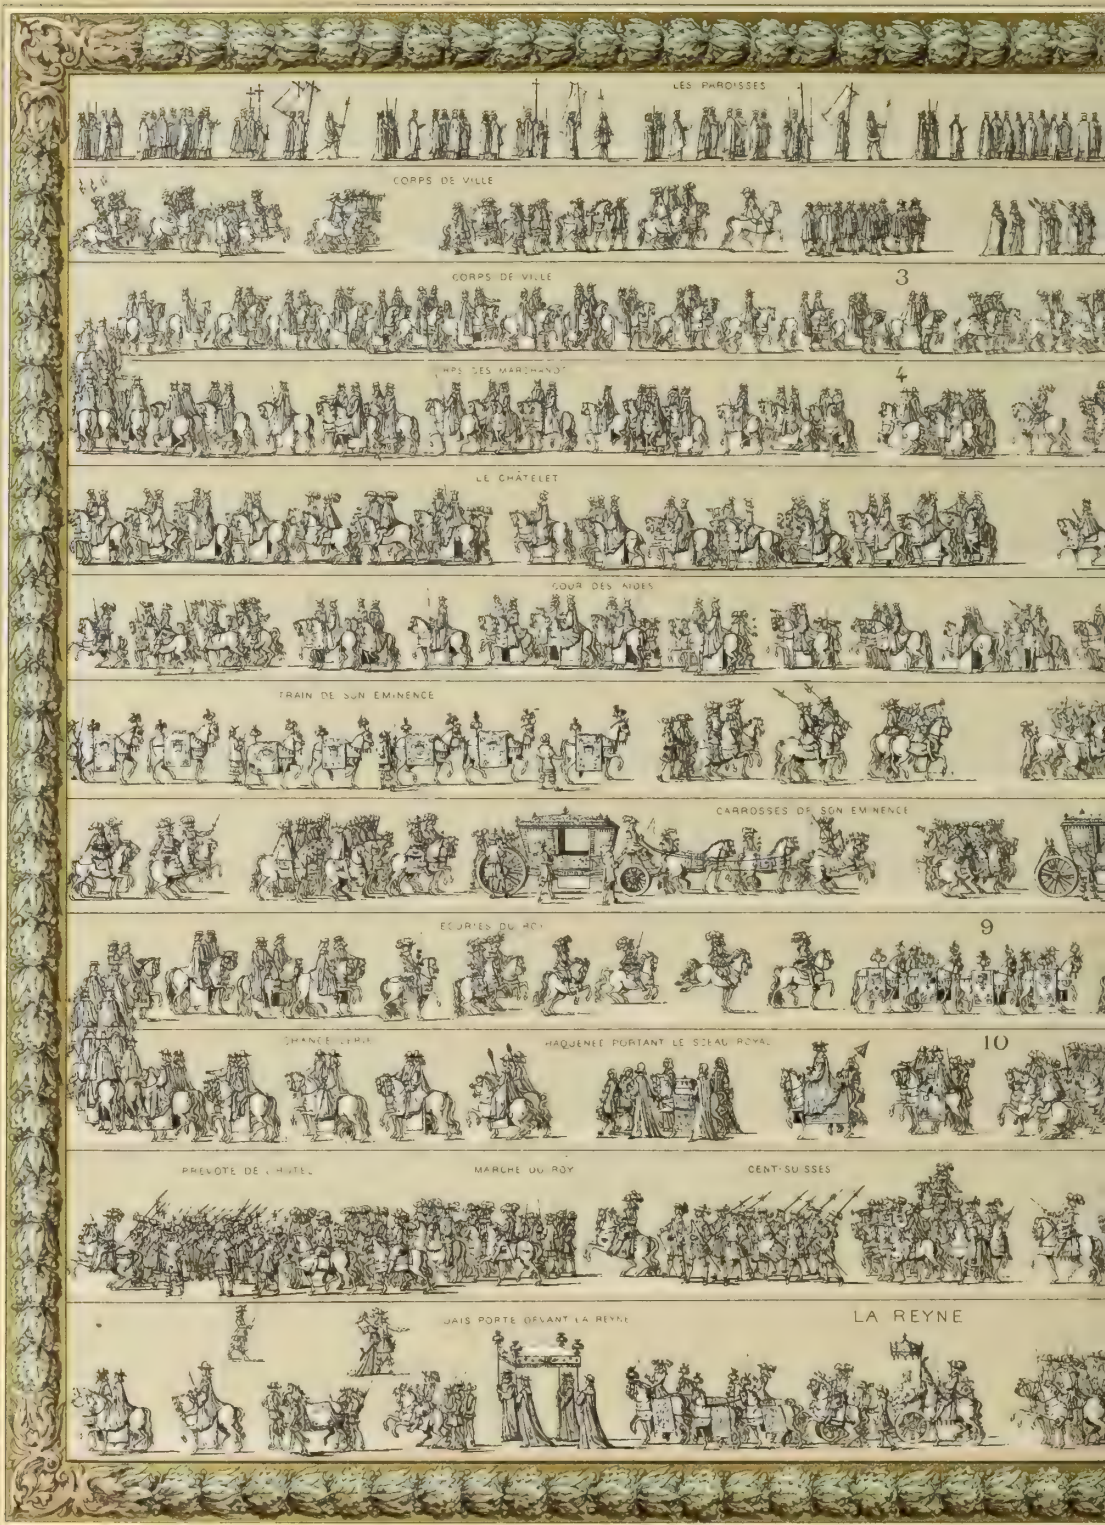 LES PAROISSES
CORPS DE VILLE
CORPS DE VILLE 3
DES MARCHANDS 4
LE CHÂTELET
COUR DES AIDES
TRAIN DE SON EMINENCE
CARROSSES DE SON EMINENCE
ECURIES DU ROY 9
HAQUENÉE PORTANT LE SCEAU ROYAL 10
PREVOTE DE L'HOTEL MARCHE DU ROY CENT-SUISSES
DAIS PORTE DEVANT LA REYNE LA REYNE